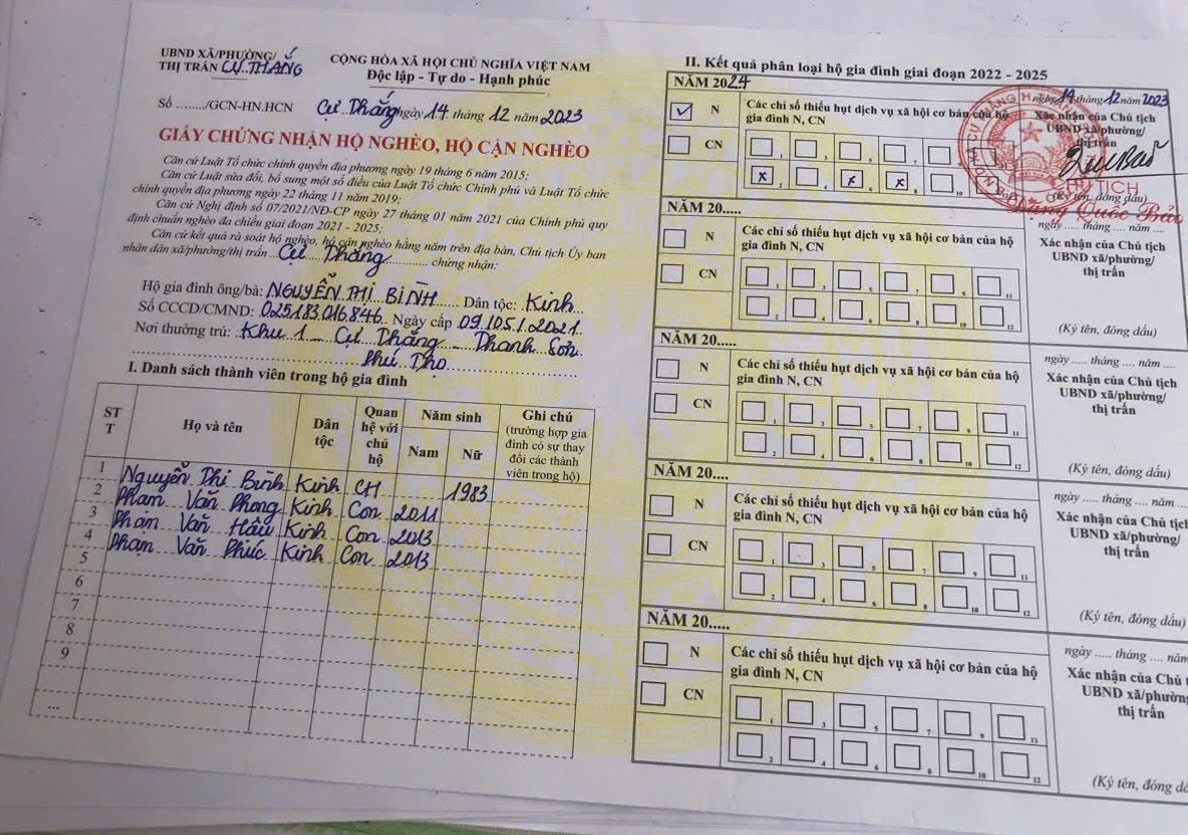 UBND XÃ/PHƯỜNG/
THỊ TRẤN CỰ THẮNG
CỘNG HÒA XÃ HỘI CHỦ NGHĨA VIỆT NAM
Độc lập - Tự do - Hạnh phúc
Số ......../GCN-HN.HCN
Cự Thắng ngày 14 tháng 12 năm 2023
GIẤY CHỨNG NHẬN HỘ NGHÈO, HỘ CẬN NGHÈO
Căn cứ Luật Tổ chức chính quyền địa phương ngày 19 tháng 6 năm 2015;
Căn cứ Luật sửa đổi, bổ sung một số điều của Luật Tổ chức Chính phủ và Luật Tổ chức
chính quyền địa phương ngày 22 tháng 11 năm 2019;
Căn cứ Nghị định số 07/2021/NĐ-CP ngày 27 tháng 01 năm 2021 của Chính phủ quy
định chuẩn nghèo đa chiều giai đoạn 2021 - 2025;
Căn cứ kết quả rà soát hộ nghèo, hộ cận nghèo hằng năm trên địa bàn, Chủ tịch Ủy ban
nhân dân xã/phường/thị trấn ...Cự Thắng......... chứng nhận:
Hộ gia đình ông/bà: NGUYỄN THỊ BÌNH...... Dân tộc: Kinh
Số CCCD/CMND: 025183016846. Ngày cấp 09/05/2021
Nơi thường trú: Khu 1 - Cự Thắng - Thanh Sơn
Phú Thọ
I. Danh sách thành viên trong hộ gia đình
ST
T
Họ và tên
Dân
tộc
Quan
hệ với
chủ
hộ
Năm sinh
Nam
Nữ
Ghi chú
(trường hợp gia
đình có sự thay
đổi các thành
viên trong hộ)
1 Nguyễn Thị Bình Kinh CH 1983
2 Phạm Văn Phong Kinh Con 2011
3 Phạm Văn Hậu Kinh Con 2013
4 Phạm Văn Phúc Kinh Con 2013
5
6
7
8
9
...
II. Kết quả phân loại hộ gia đình giai đoạn 2022 - 2025
NĂM 2024
N
CN
Các chỉ số thiếu hụt dịch vụ xã hội cơ bản của hộ
gia đình N, CN
1 3 5 7
x 2 4 x 6 x 8 10
ngày 14 tháng 12 năm 2023
Xác nhận của Chủ tịch
UBND xã/phường/
thị trấn
CHỦ TỊCH
(Ký tên, đóng dấu)
Đặng Quốc Bảo
NĂM 20.....
N
CN
Các chỉ số thiếu hụt dịch vụ xã hội cơ bản của hộ
gia đình N, CN
1 3 5 7 9 11
2 4 6 8 10 12
ngày ..... tháng .... năm ....
Xác nhận của Chủ tịch
UBND xã/phường/
thị trấn
(Ký tên, đóng dấu)
NĂM 20.....
N
CN
Các chỉ số thiếu hụt dịch vụ xã hội cơ bản của hộ
gia đình N, CN
1 3 5 7 9 11
2 4 6 8 10 12
ngày ..... tháng .... năm ....
Xác nhận của Chủ tịch
UBND xã/phường/
thị trấn
(Ký tên, đóng dấu)
NĂM 20.....
N
CN
Các chỉ số thiếu hụt dịch vụ xã hội cơ bản của hộ
gia đình N, CN
1 3 5 7 9 11
2 4 6 8 10 12
ngày ..... tháng .... năm
Xác nhận của Chủ tịch
UBND xã/phường/
thị trấn
(Ký tên, đóng dấu)
NĂM 20.....
N
CN
Các chỉ số thiếu hụt dịch vụ xã hội cơ bản của hộ
gia đình N, CN
1 3 5 7 9 11
2 4 6 8 10 12
ngày ..... tháng .... năm
Xác nhận của Chủ
UBND xã/phường
thị trấn
(Ký tên, đóng dấ